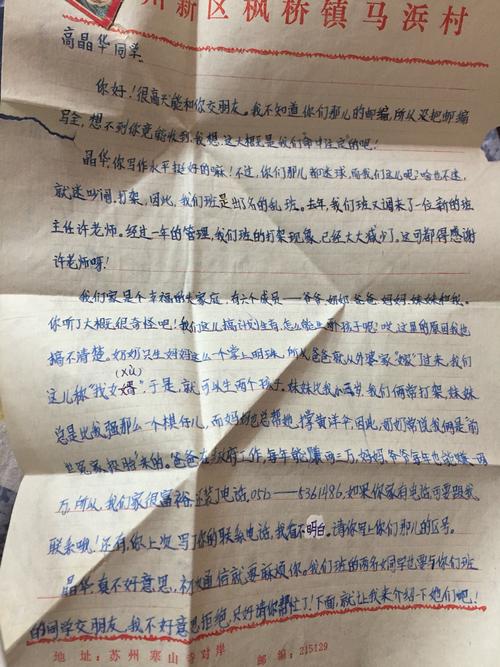 州新区枫桥镇马浜村
高晶华同学
你好!很高兴能和你交朋友。我不知道你们那儿的邮编,所以没把邮编
写全,想不到你竟能收到,我想,这大概是我们"命中注定"的吧!
晶华,你写作水平挺好的嘛!不过,你们那儿都迷球,而我们这儿呢?啥也不迷,
就迷吵闹,打架,因此,我们班是出名的乱班。去年,我们班又调来了一位新的班
主任许老师。经过一年的管理,我们班的打架现象,已经大大减少了,这可都得感谢
许老师呀!
我们家是个幸福的大家庭,有六个成员——爷爷,奶奶,爸爸,妈妈,妹妹和我。
你听了大概很奇怪吧!我们这儿搞计划生育,怎么能生两孩子呢?哎,这里的原因我也
搞不清楚。奶奶只生妈妈这么一个掌上明珠,所以爸爸就从外婆家"嫁"过来,我们
(xù)
这儿做"找女婿"。于是,就可以生两个孩子。妹妹比我小两岁,我们俩常打架,妹妹
总是比我强那么一个棋仔儿,而妈妈也总帮她,撑黄洋伞,因此,奶奶常说我俩是"前
世冤家投胎"来的。爸爸在政府工作,每年能赚两三万,妈妈,爷爷每年也能赚一两
万,所以,我们家很富裕,还装了电话,如果你家有电话可要跟我
联系哦!还有,你上次写了你的联系电话,我有不明白。请你写上你们那儿的区号。
晶华,真不好意思,初次通信就要麻烦你。我们班的两名女同学也要与你们班
的同学交朋友,我不好意思拒绝,只好请你帮忙了!下面,就让我来介绍一下她们吧!
地址:苏州寒山寺对岸 邮编:215129